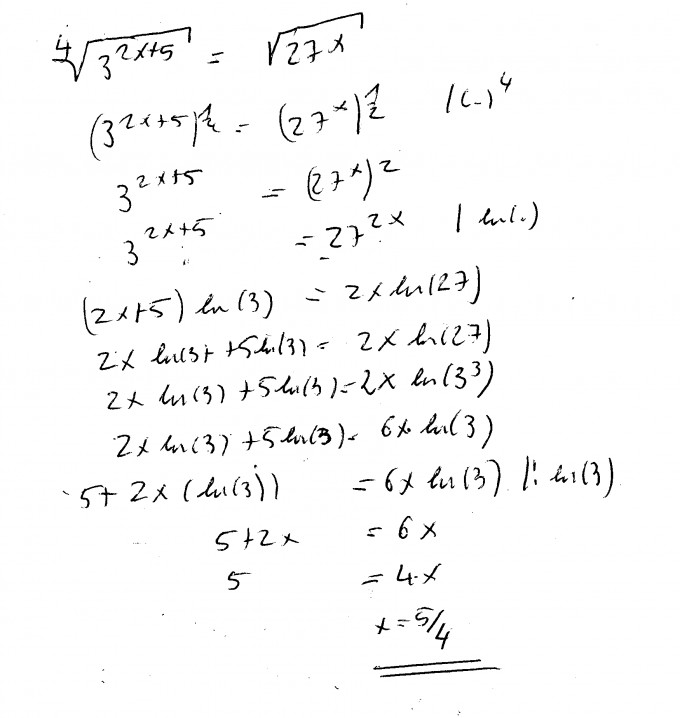 ⁴√(3^(2x+5)) = √(27^x)
(3^(2x+5))^(1/4) = (27^x)^(1/2) |(-)^4
3^(2x+5) = (27^x)^2
3^(2x+5) = 27^(2x) | ln(.)
(2x+5) ln(3) = 2x ln(27)
2x ln(3) +5ln(3) = 2x ln(27)
2x ln(3) +5ln(3) = 2x ln(3^3)
2x ln(3) +5ln(3) = 6x ln(3)
5+ 2x (ln(3)) = 6x ln(3) |: ln(3)
5+2x = 6x
5 = 4·x
x = 5/4